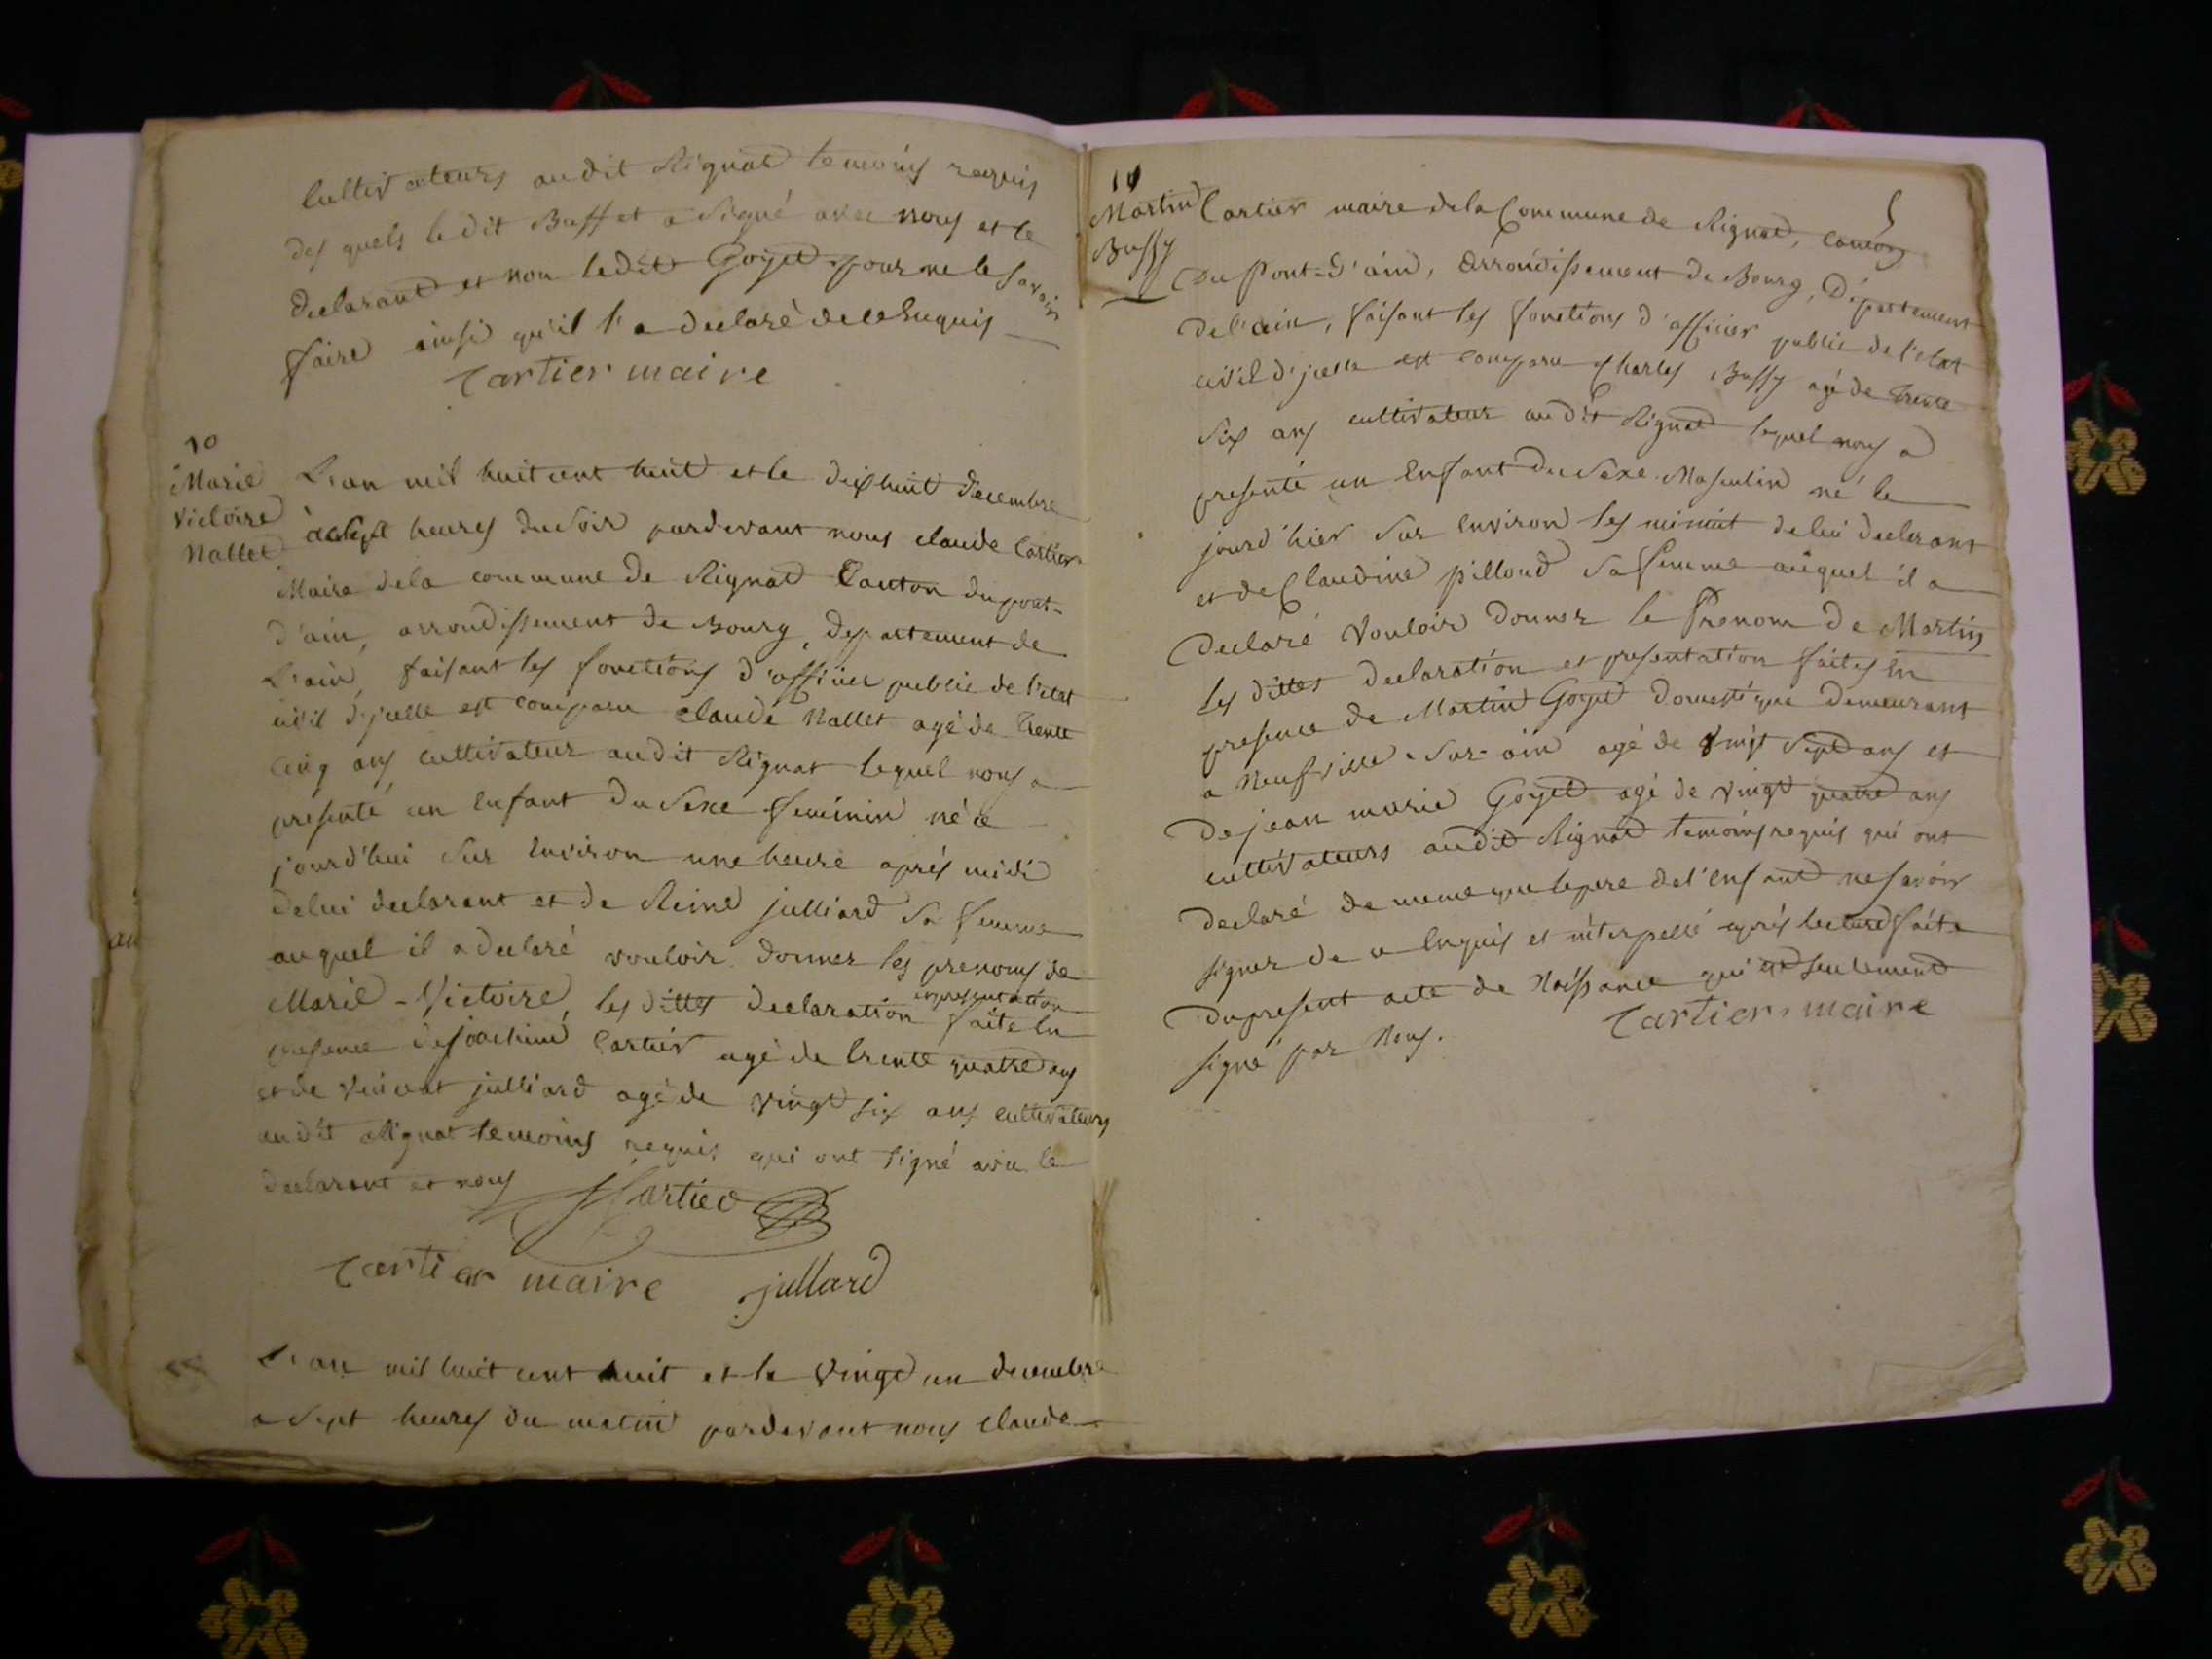 Cultivateurs audit Rignat temoins requis
des quels ledit Buffet a signé avec nous et le
declarant et non ledit Goyet pour ne le savoir
faire ainsi qu'il l'a declaré de ce enquis
Cartier maire
10
Marie
Victoire
Nallet
L'an mil huit cent huit et le dix huit decembre
à sept heures du soir pardevant nous claude Cartier
Maire dela commune de Rignat Canton du pont-
d'ain, arrondissement de Bourg, departement de
L'ain, faisant les fonctions d'officier public de l'etat
civil d'jcelle est comparu Claude Nallet agé de trente
cinq ans cultivateur audit Rignat lequel nous a
presenté un Enfant du Sexe feminin né ce
jourd'hui sur Environ une heure après midi
delui declarant et de Reine julliard sa femme
auquel il a declaré vouloir donner les prenoms de
Marie-Victoire, les dittes declaration et presentation faite En
presence de joachim Cartier agé de trente quatre ans
et de Vincent julliard agé de vingt six ans cultivateurs
audit Rignat temoins requis qui ont signé avec le
declarant et nous
Cartier
Cartier maire
jullard
11
L'an mil huit cent huit et le vingt un decembre
a sept heures du matin pardevant nous Claude
11
Martin
Bussy
5
Cartier maire dela Commune de Rignat, canton
Du Pont-d'ain, arrondissement de Bourg, Département
del'ain, faisant les fonctions d'officier public de l'etat
civil d'jcelle est comparu Charles Bussy agé de trente
Six ans cultivateur audit Rignat lequel nous a
presenté un Enfant du Sexe Masculin né le
jourd'hier sur Environ les minuit delui declarant
et de Claudine pilloud sa femme auquel il a
Declaré vouloir donner le Prenom de Martin
les dittes declaration et presentation faites En
presence de Martin Goyet domestique demeurant
a Neufville-sur-ain agé de vingt sept ans et
De jean marie Goyet agé de vingt quatre ans
cultivateurs audit Rignat temoins requis qui ont
declaré de meme que le pere de l'Enfant ne savoir
signer de ce Enquis et interpellé après lecture faite
Du present acte de Naissance qui est seulement
signé par Nous.
Cartier, maire